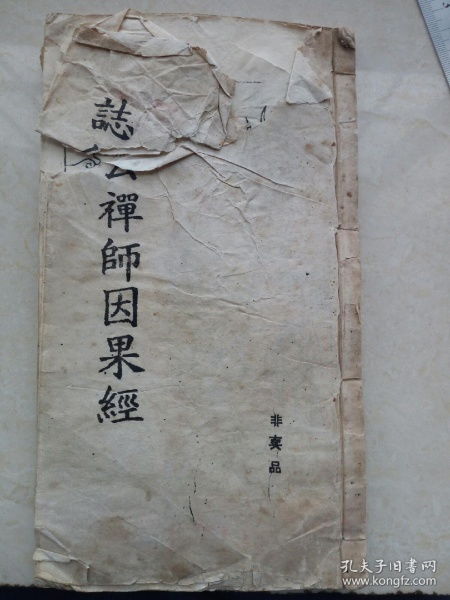 誌公禪師因果經
非賣品
孔夫子旧书网
www.kongfz.com